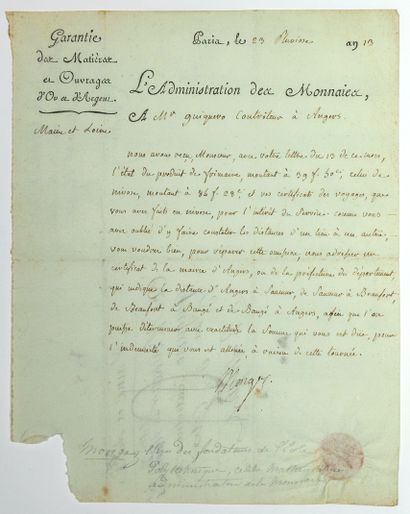 Garantie
des Matières
et Ouvrages
d'Or et d'Argent.
Maine et Loire
Paris, le 23 Pluviose an 13
L'Administration des Monnaies,
A Mr. Guiguero Contrôleur à Angers.
nous avons reçu, Monsieur, avec votre lettre du 13 de ce mois,
l'état du produit de frimaire, montant à 39 f 50 c; celui de
nivose, montant à 86 f 28 c; et vos certificats des voyages, que
vous avez faits en nivose, pour l'intérêt du Service. comme vous
avez oublié d'y faire constater les distances d'un lieu à un autre,
vous voudrez bien, pour réparer cette omission, nous adresser un
certificat de la mairie d'Angers, ou de la préfecture du département,
qui indique la distance d'Angers à Saumur, de Saumur à Beaufort,
de Beaufort à Baugé et de Baugé à Angers, afin que l'on
puisse déterminer avec exactitude la Somme qui vous est due, pour
l'indemnité qui vous est allouée à raison de cette tournée.
Mongez
Mongez l'un des fondateurs de l'école
Polytechnique, célèbre
administrateur de la Monnaie